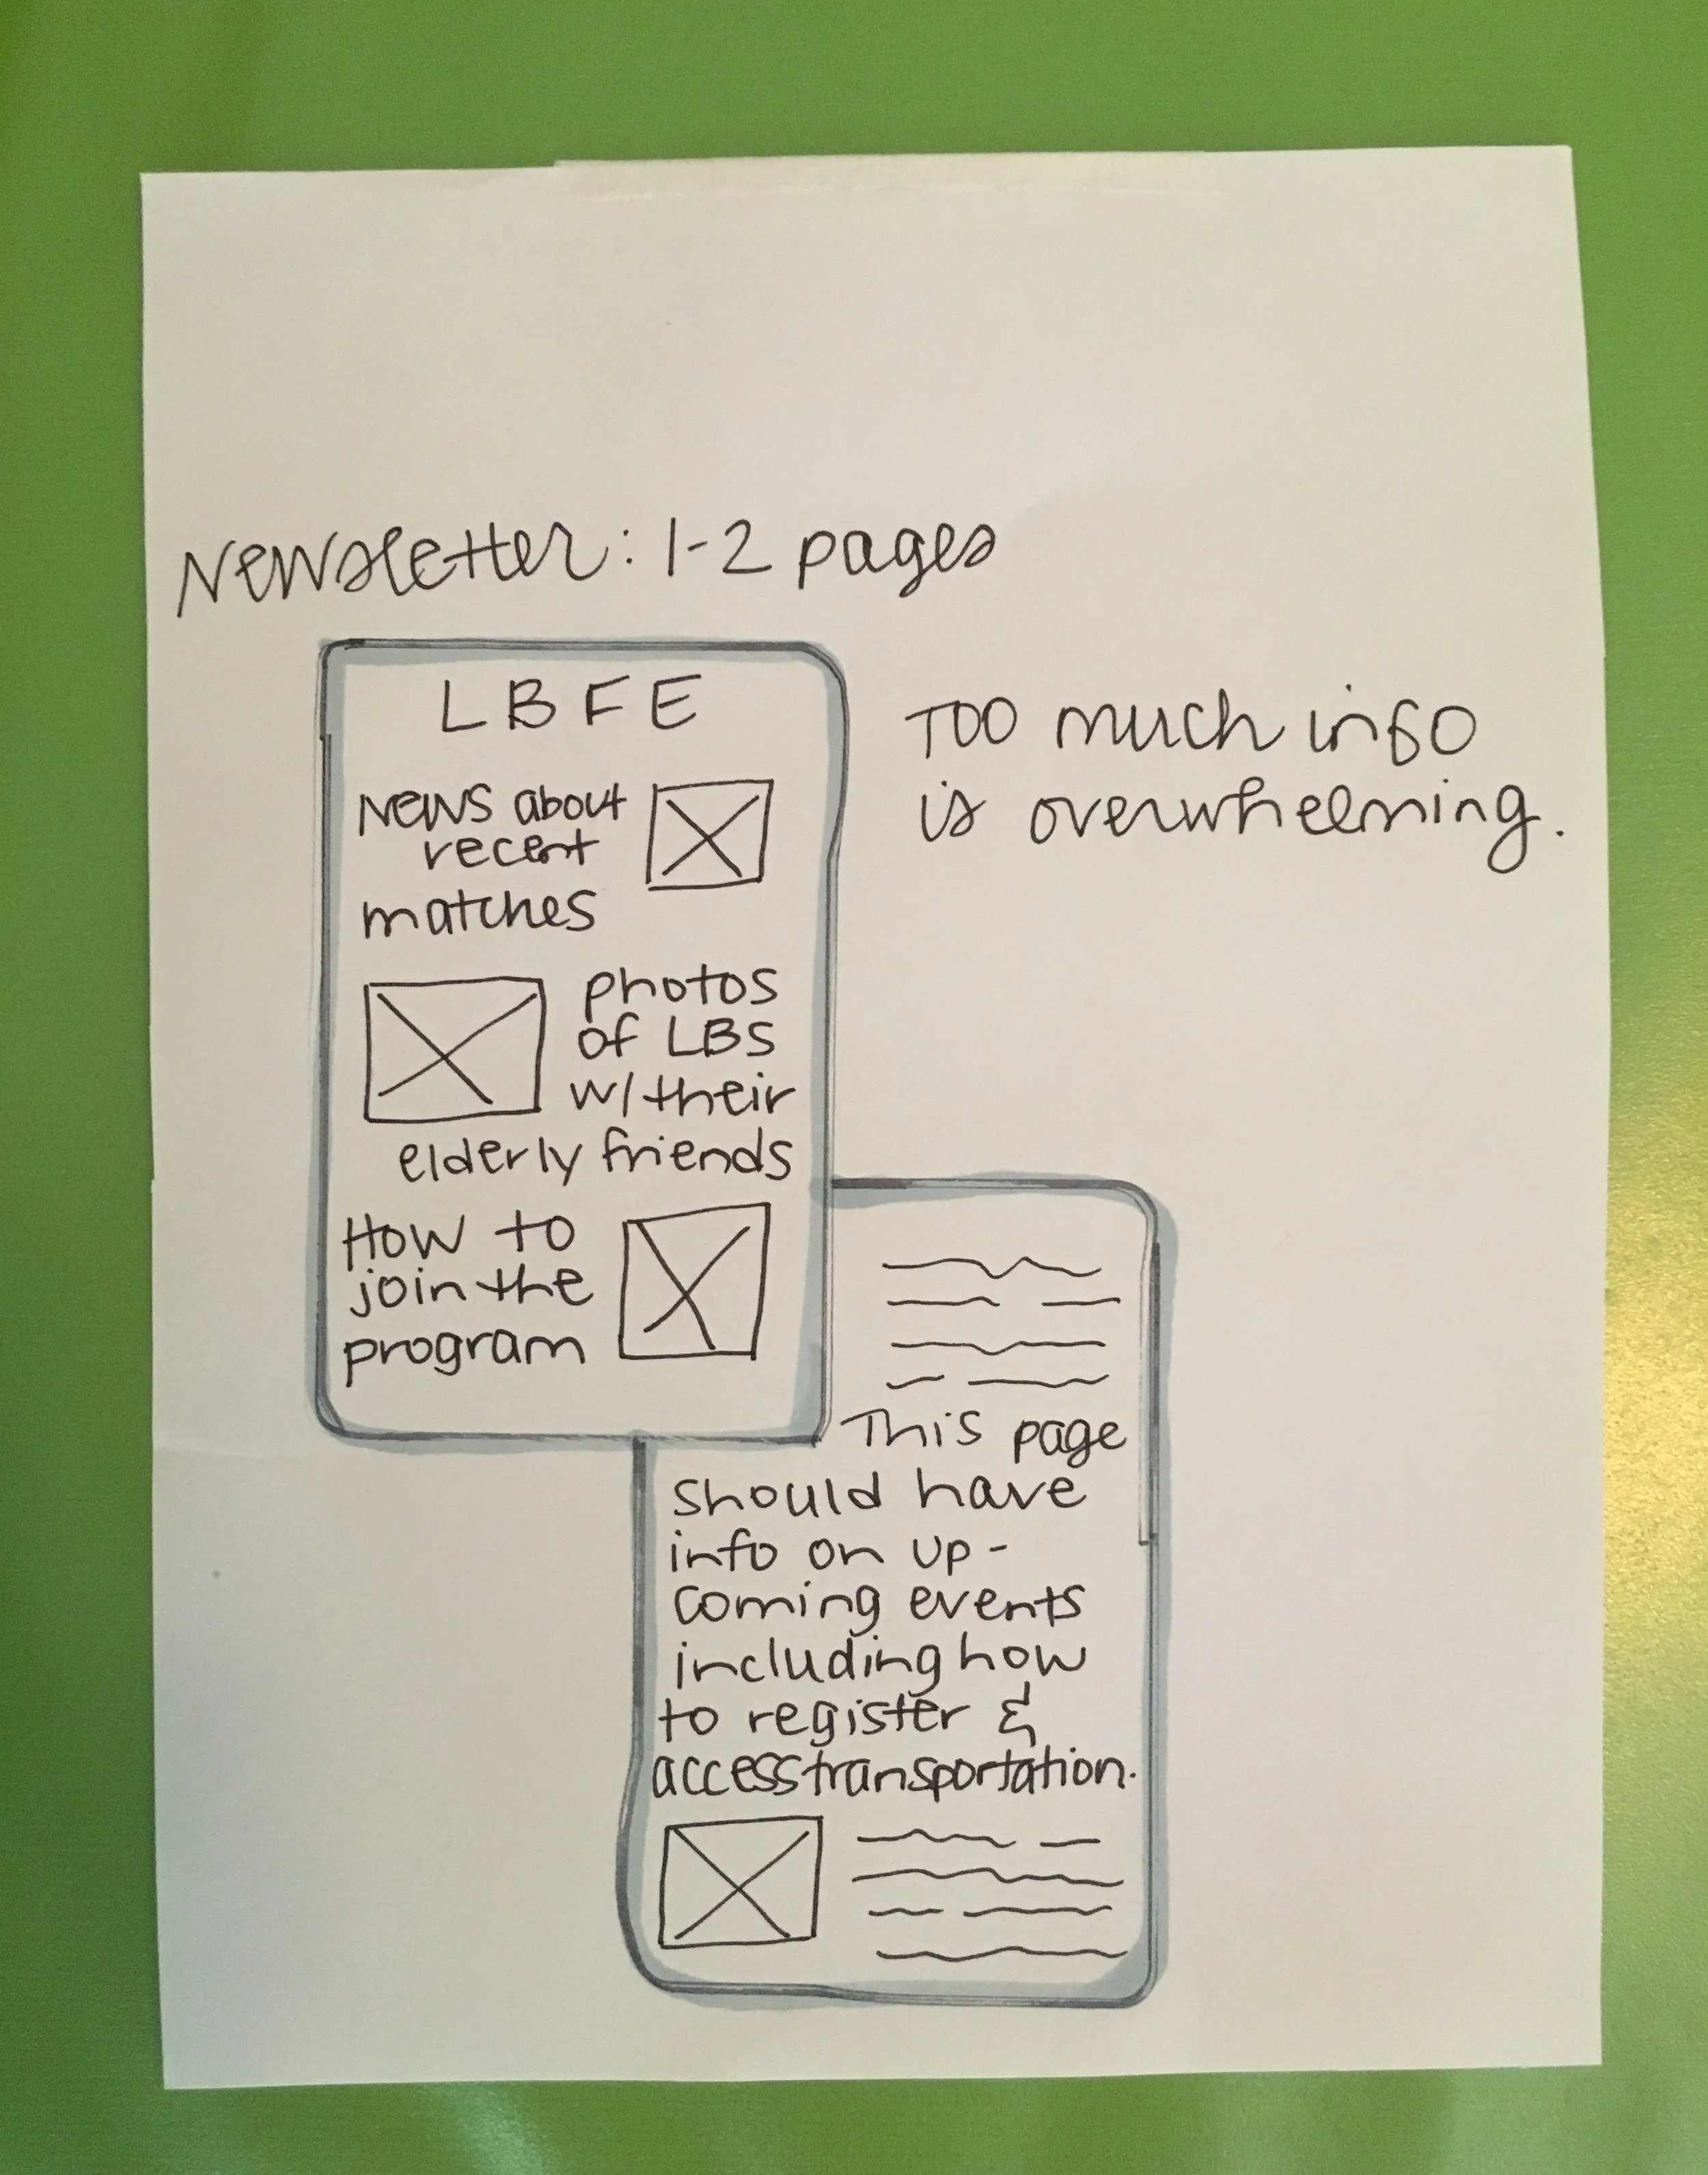 Newsletter: 1-2 pages
LBFE
News about
recent
matches
photos
of LBS
w/ their
elderly friends
How to
join the
program
Too much info
is overwhelming.
This page
should have
info on up-
coming events
including how
to register &
access transportation.